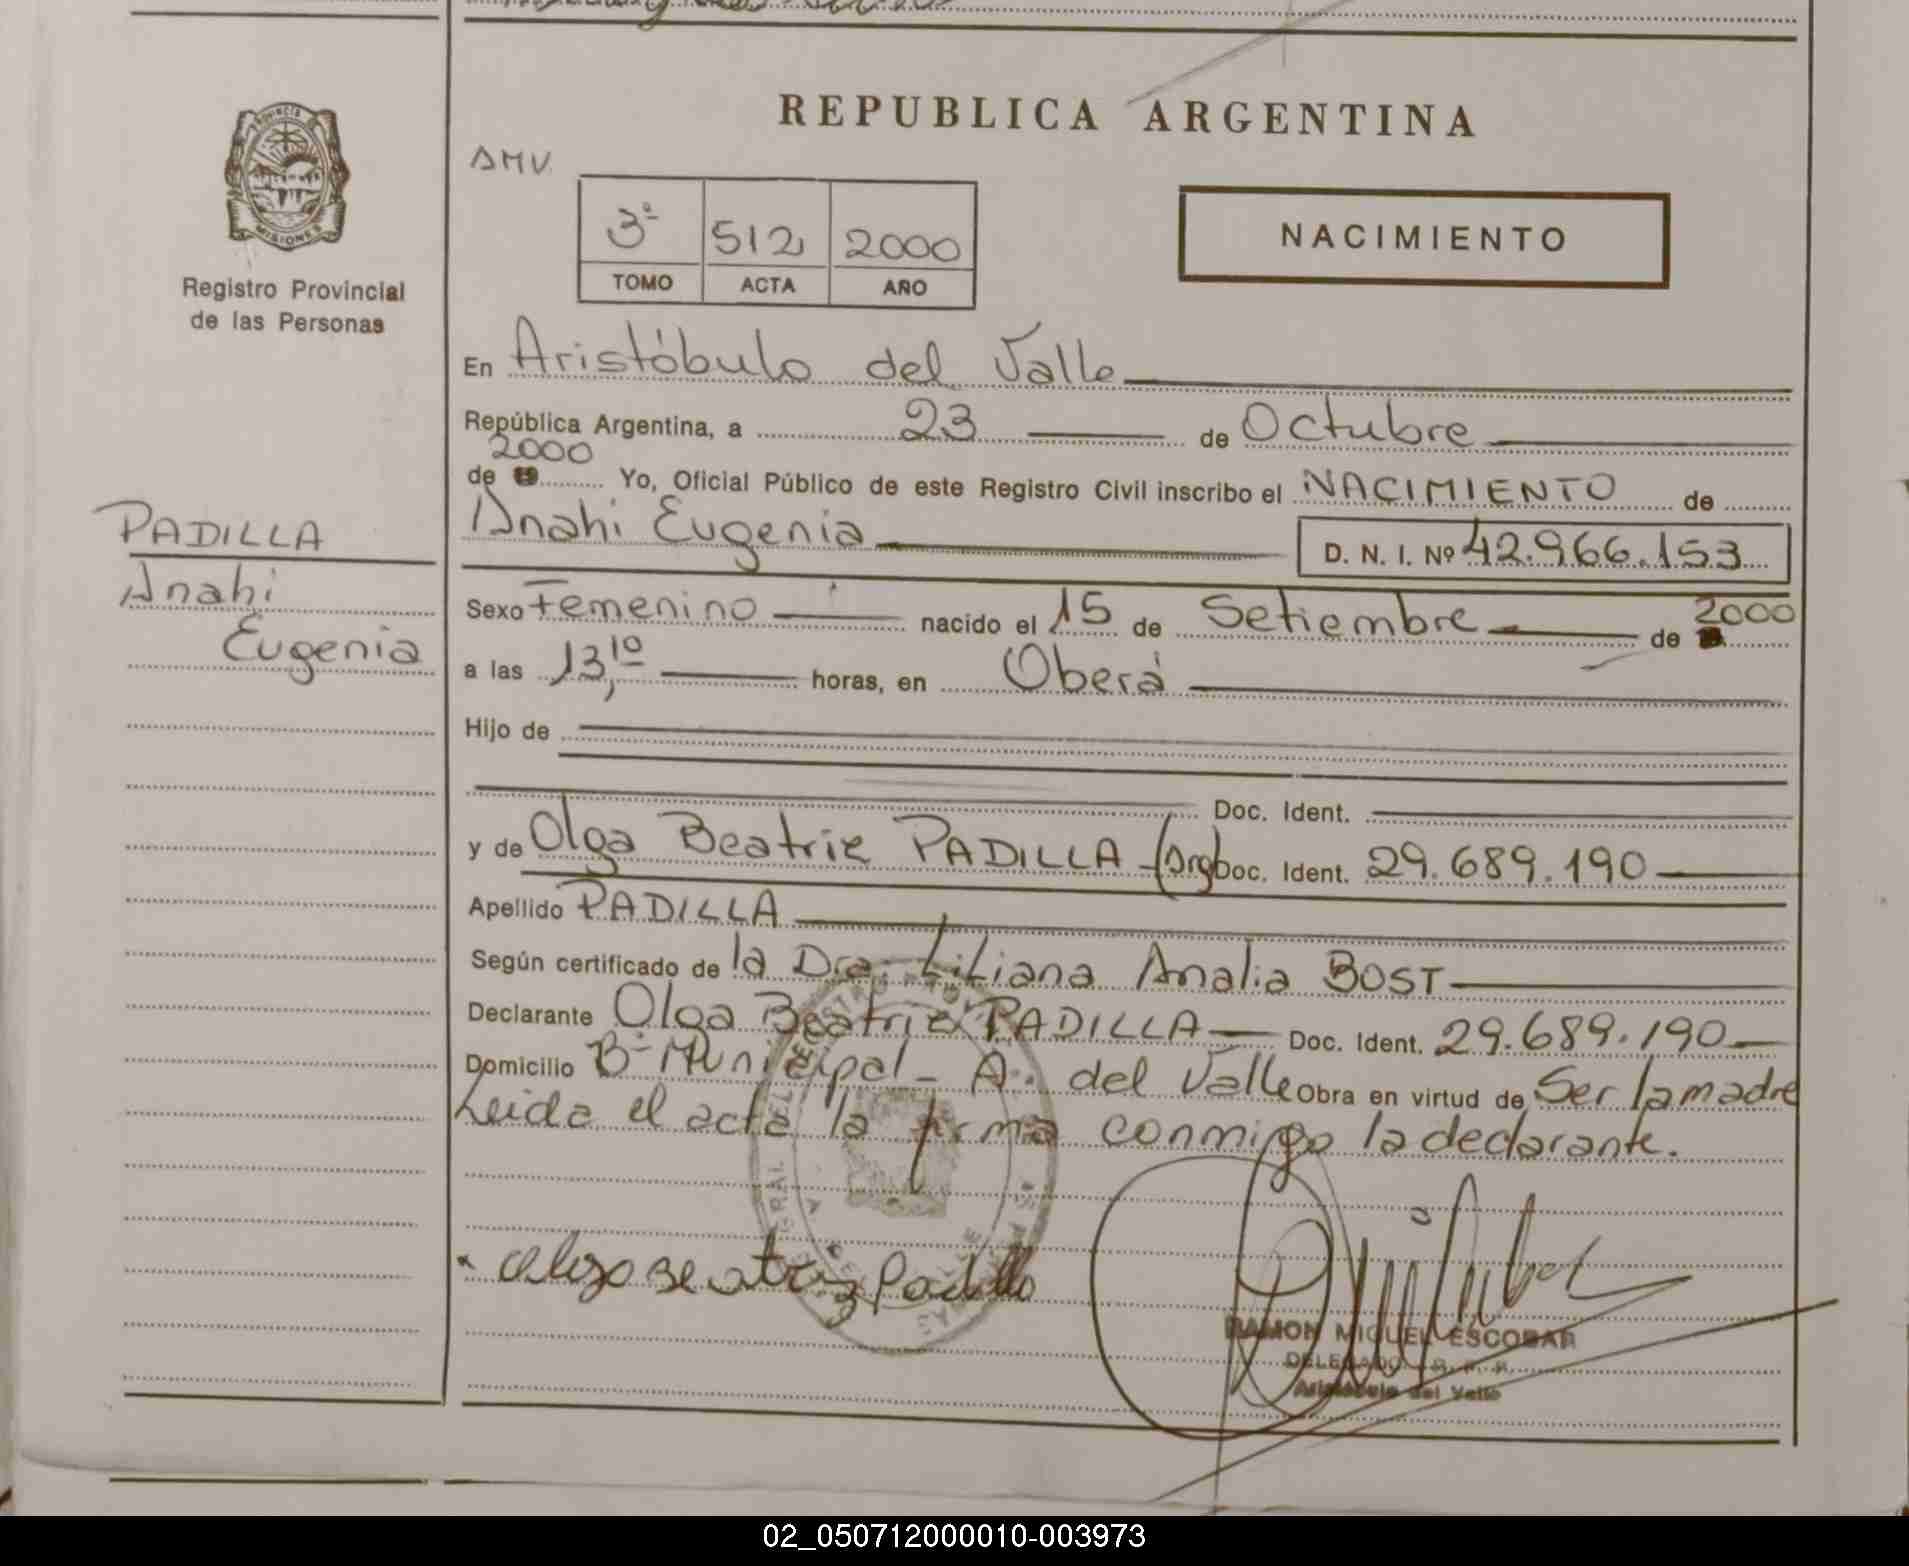 REPUBLICA ARGENTINA
PROVINCIA
MISIONES
Registro Provincial
de las Personas
AMV.
3º 512 2000
TOMO ACTA AÑO
NACIMIENTO
En Aristóbulo del Valle
República Argentina, a 23 de Octubre
2000
de 19 Yo, Oficial Público de este Registro Civil inscribo el NACIMIENTO de
Anahi Eugenia D. N. I. Nº 42.966.153
PADILLA
Anahi
Eugenia
Sexo Femenino nacido el 15 de Setiembre de 2000
a las 13,10 horas, en Oberá
Hijo de
Doc. Ident.
y de Olga Beatriz PADILLA - (Arg) Doc. Ident. 29.689.190
Apellido PADILLA
Según certificado de la Dra. Liliana Analia BOST
Declarante Olga Beatriz PADILLA Doc. Ident. 29.689.190
Domicilio Bº Municipal - A. del Valle Obra en virtud de Ser la madre
Leida el acta la firma conmigo la declarante.
Olga Beatriz Padilla
RAMON MIGUEL ESCOBAR
DELEGADO R. P. P.
Aristóbulo del Valle
02_050712000010-003973